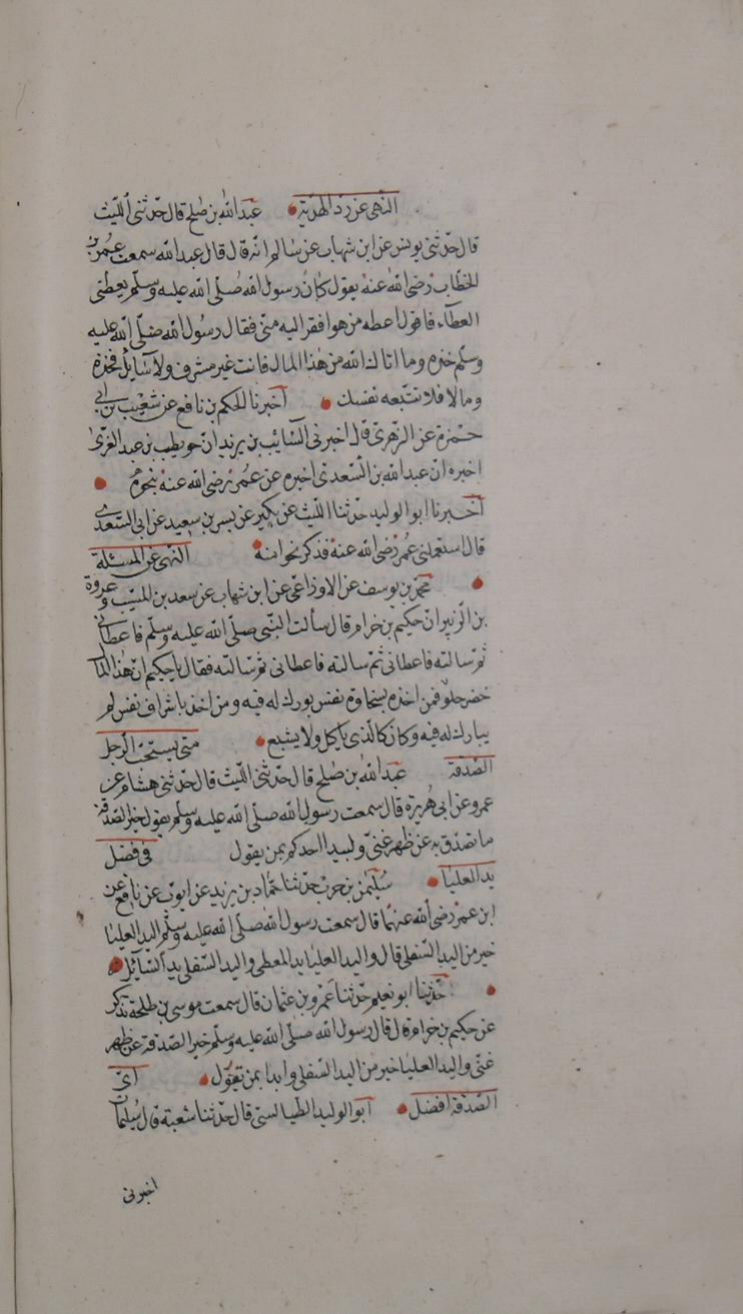 النهى عن رد الهدية عبد الله بن صلح قال حدثنى الليث
قال حدثنى يونس عن ابن شهاب عن سالم انه قال قال عبد الله سمعت عمر بن
الخطاب رضى الله عنه يقول كان رسول الله صلى الله عليه وسلم يعطنى
العطاء فاقول اعطه من هو افقر اليه منى فقال رسول الله صلى الله عليه
وسلم خذه وما اتاك الله من هذا المال فانت غير مشرف ولا سايل فخذه
ومالا فلا تتبعه نفسك اخبرنا الحكم بن نافع عن شعيب بن ابى
حمزة عن الزهرى قال اخبرنى السايب بن يزيد ان حويطب بن عبد العزى
اخبره ان عبد الله بن السعدى اخبره عن عمر رضى الله عنه بنحوه
اخبرنا ابو الوليد حدثنا الليث عن بكير عن بسر بن سعيد عن ابى السعدى
قال استعملنى عمر رضى الله عنه فذكر نحوا منه النهى عن المسئلة
محمد بن يوسف عن الاوزاعى عن ابن شهاب عن سعد بن المسيب وعروة
بن الزبير ان حكيم بن حزام قال سألت النبى صلى الله عليه وسلم فاعطانى
ثم سالته فاعطانى ثم سالته فاعطانى ثم سالته فقال يا حكيم ان هذا المال
خضر حلو فمن اخذه بسخاوة نفس بورك له فيه ومن اخذ باشراف نفس لم
يبارك له فيه وكان كالذى ياكل ولا يشبع متى يستحب الرجل
الصدقة عبد الله بن صلح قال حدثنى الليث قال حدثنى هشام عن
عمرو عن ابى هريرة قال سمعت رسول الله صلى الله عليه وسلم يقول خير الصدقة
ما تصدق به عن ظهر غنى وليبدا احدكم بمن يقول فى فضل
يد العليا سليمن بن حرب حدثنا حماد بن يزيد عن ايوب عن نافع عن
ابن عمر رضى الله عنهما قال سمعت رسول الله صلى الله عليه وسلم اليد العليا
خير من اليد السفلى قال واليد العليا يد المعطى واليد السفلى يد السايل
حدثنا ابو نعيم حدثنا عمرو بن عثمان قال سمعت موسى بن طلحة يذكر
عن حكيم بن حزام قال قال رسول الله صلى الله عليه وسلم خير الصدقة عن ظهر
غنى واليد العليا خير من اليد السفلى وابدا بمن تعول اى
الصدقة افضل ابو الوليد الطيالسى قال حدثنا شعبة قال سليمان
اخبرنى